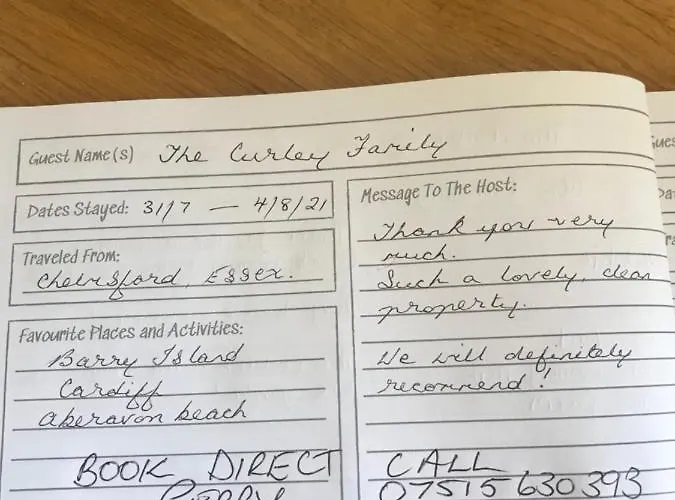 Guest Name(s) The Curley Family
Dates Stayed: 31/7 — 4/8/21
Traveled From:
Chelmsford, Essex.
Favourite Places and Activities:
Barry Island
Cardiff
Aberavon beach
Message To The Host:
Thank you very
much.
Such a lovely, clean
property.
We will definitely
recommend!
BOOK DIRECT CALL
07515 630 393